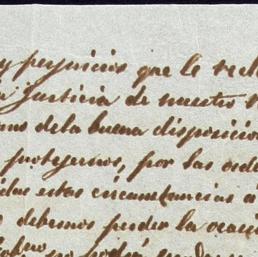 y perjuicios que le recl
justicia de nuestro
de la buena disposicion
protejernos, por las orde
estas circunstancias
debemos perder la ocaci